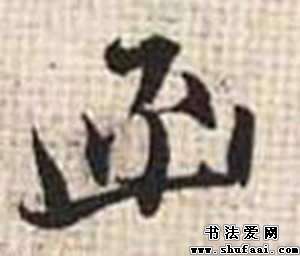 函
书法爱网
www.shufaai.com